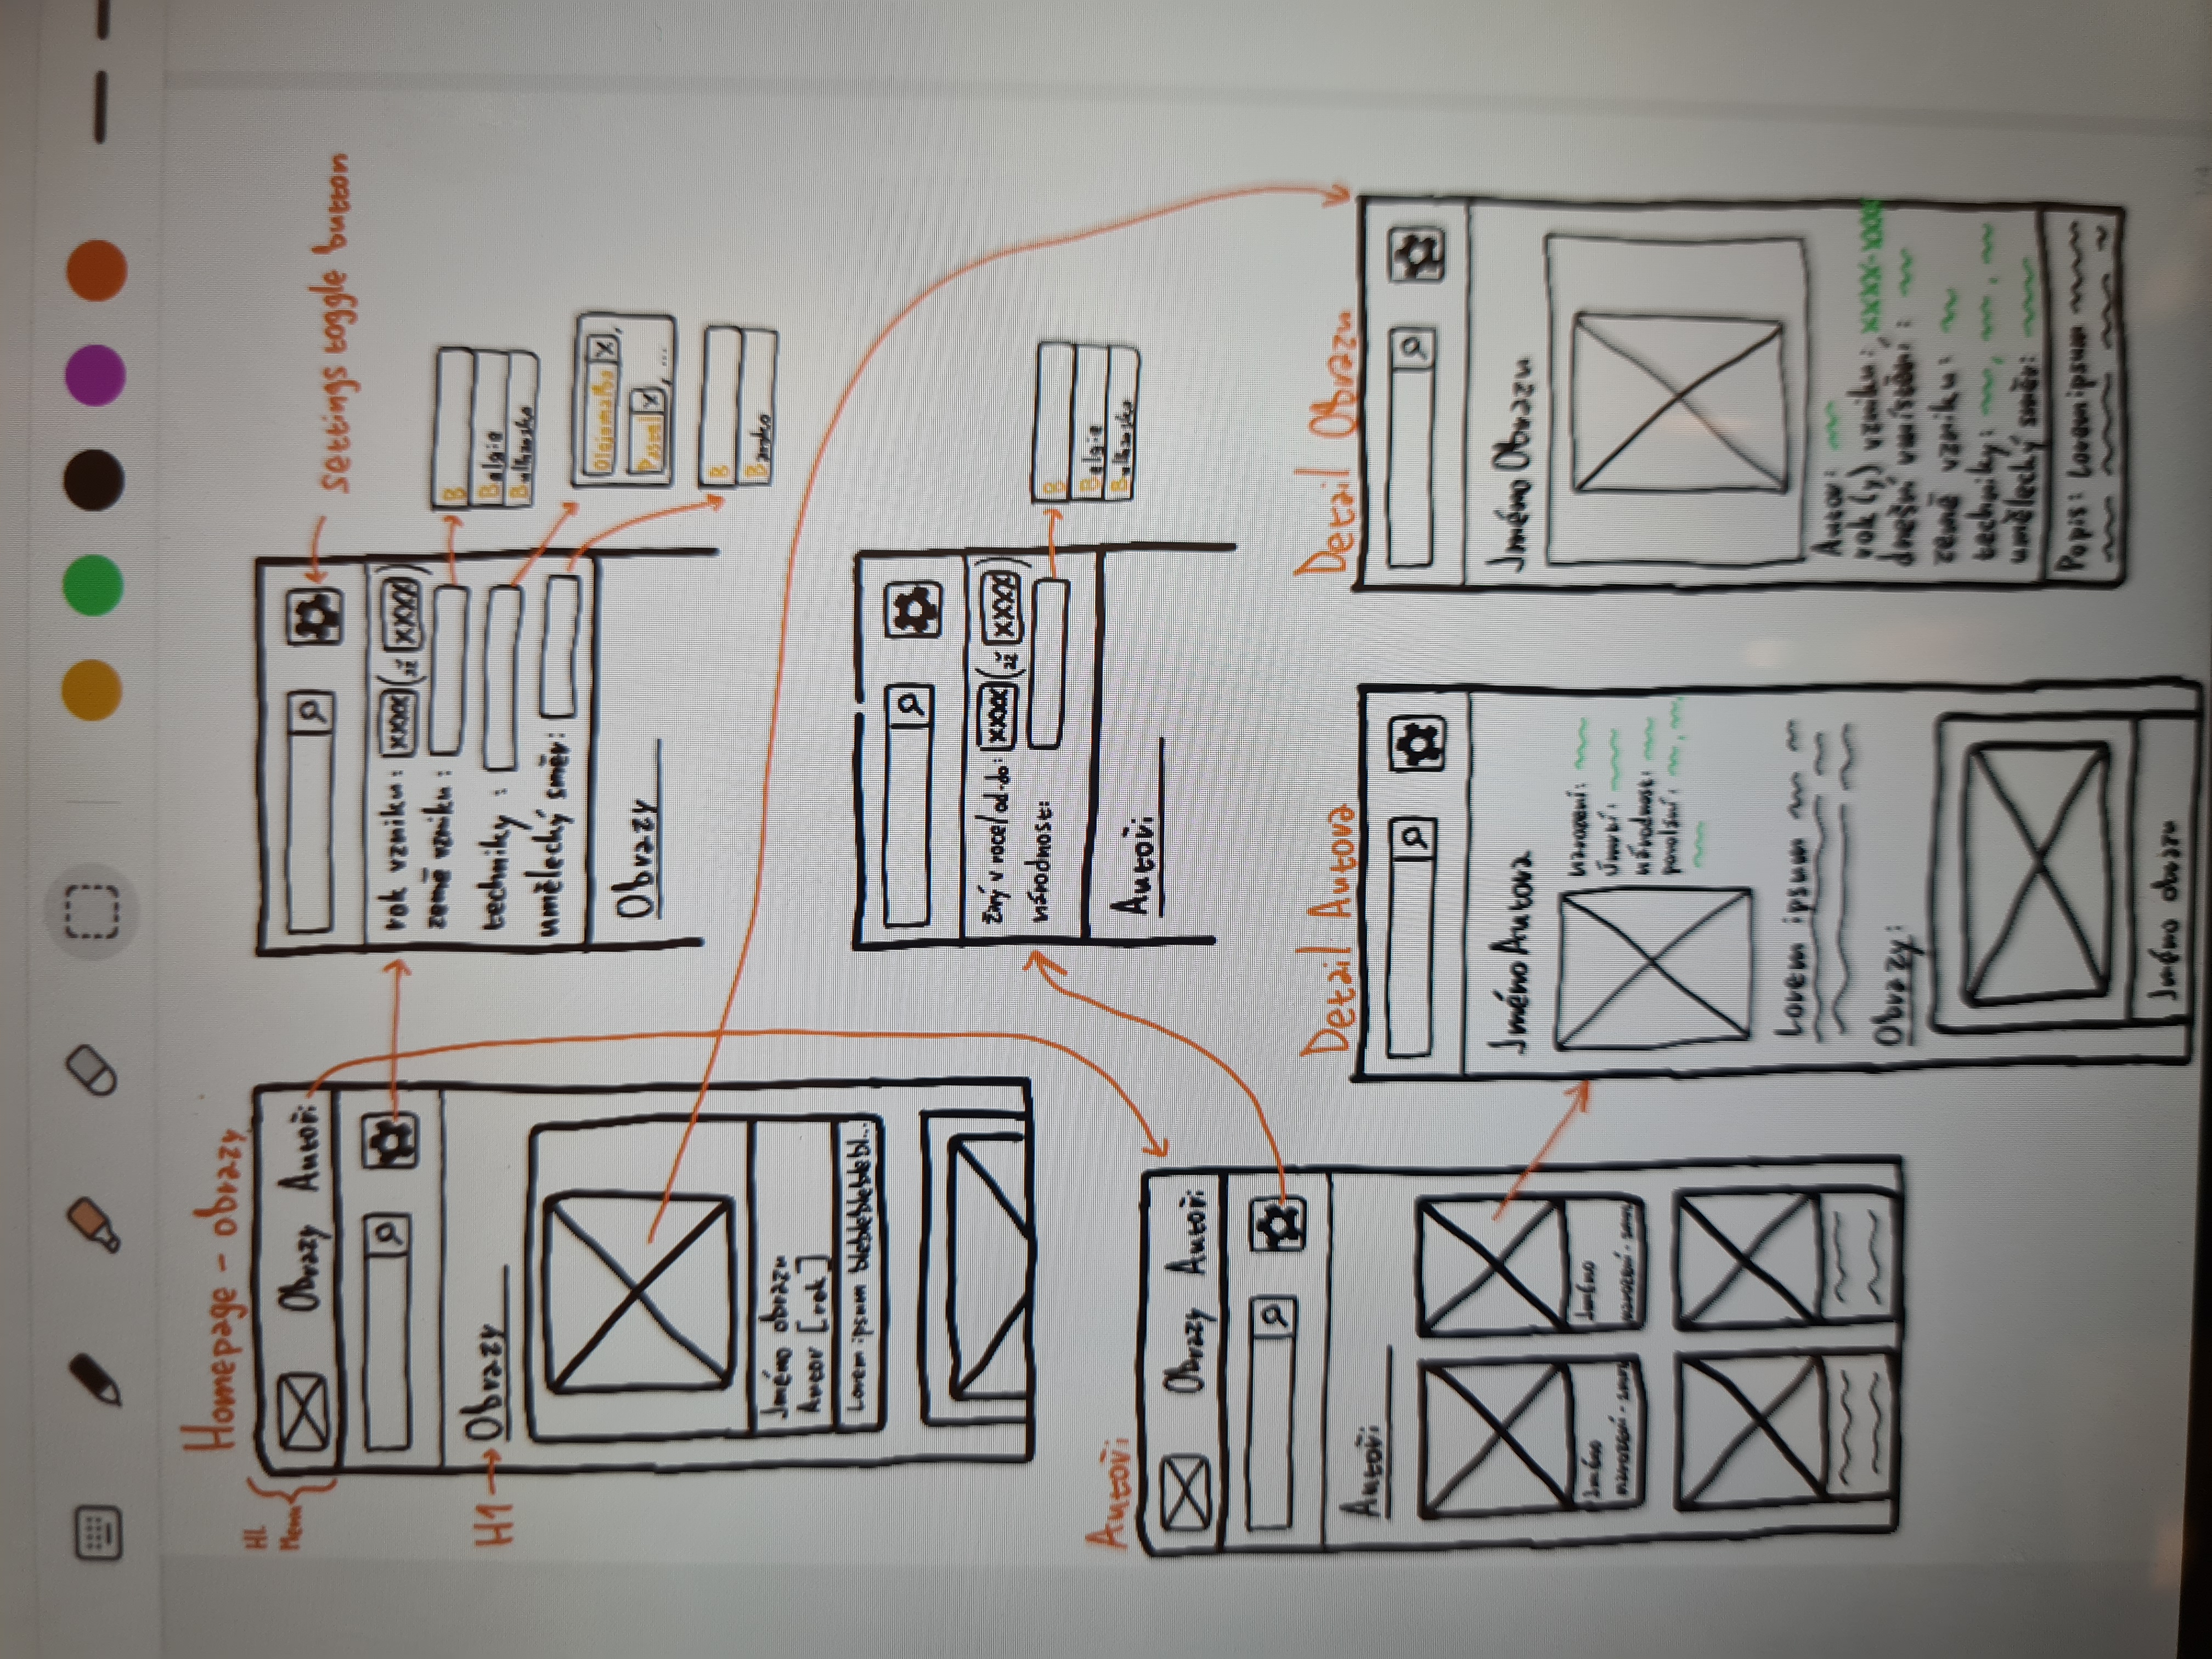 Homepage - obrazy
Hl.
Menu
Obrazy Autoři
H1
Obrazy
Jméno obrazu
Autor [rok]
Lorem ipsum bleblebleblebl...
settings toggle button
rok vzniku: xxxx (až xxxx)
země vzniku:
techniky :
umělecký směr:
Obrazy
B
Belgie
Bulharsko
Olejomalba x,
Pastel x, ...
B
Baroko
živý v roce/od-do: xxxx (až xxxx)
národnost:
Autoři
B
Belgie
Bulharsko
Autoři
Obrazy Autoři
Autoři
Jméno
narození -
Jméno
narození -
Detail Autora
Jméno Autora
narození:
úmrtí:
národnost:
povolání: , ,
Lorem ipsum
Obrazy:
Jméno obrazu
Detail Obrazu
Jméno Obrazu
Autor:
rok (y) vzniku: xxxx-xxxx
dnešní umístění :
země vzniku:
techniky: , ,
umělecký směr:
Popis: Lorem ipsum